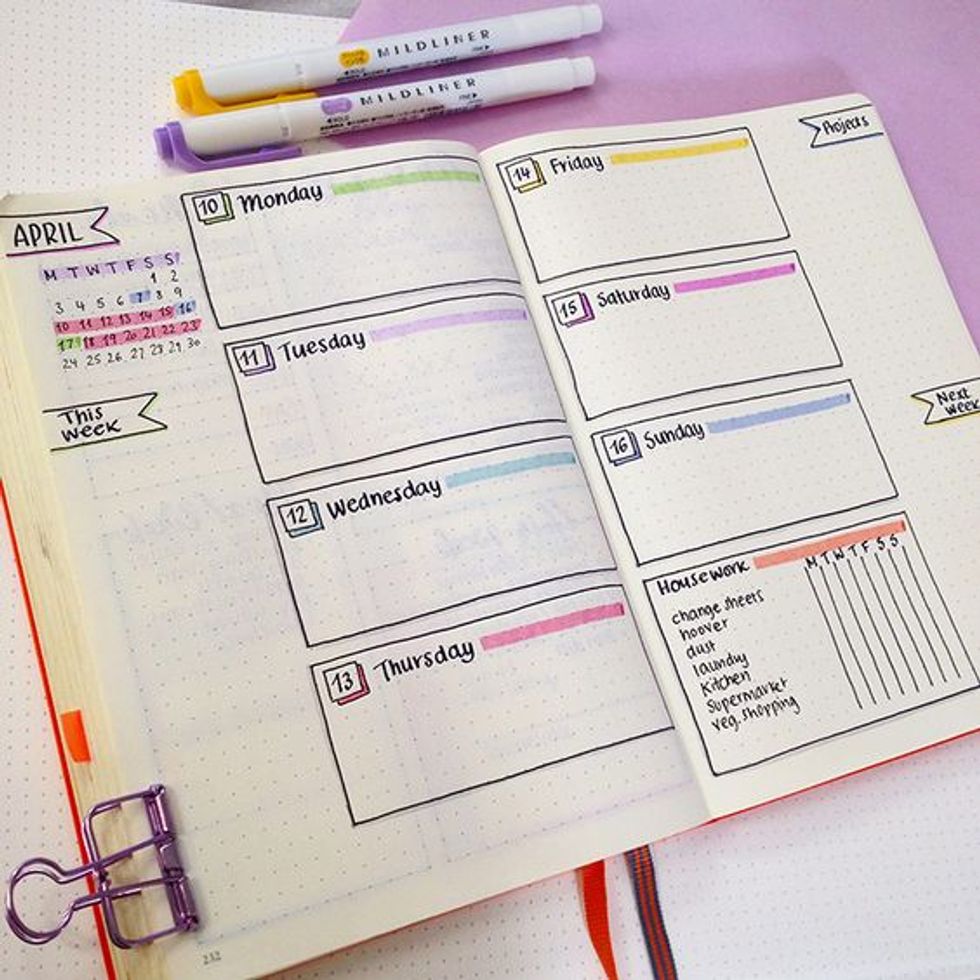 MILDLINER
MILDLINER
APRIL
M T W T F S S
1 2
3 4 5 6 7 8 9
10 11 12 13 14 15 16
17 18 19 20 21 22 23
24 25 26 27 28 29 30
This
week
10 Monday
11 Tuesday
12 Wednesday
13 Thursday
232
14 Friday
15 Saturday
16 Sunday
Housework
M T W T F S S
change sheets
hoover
dust
laundry
Kitchen
Supermarket
veg. shopping
Projects
Next
week